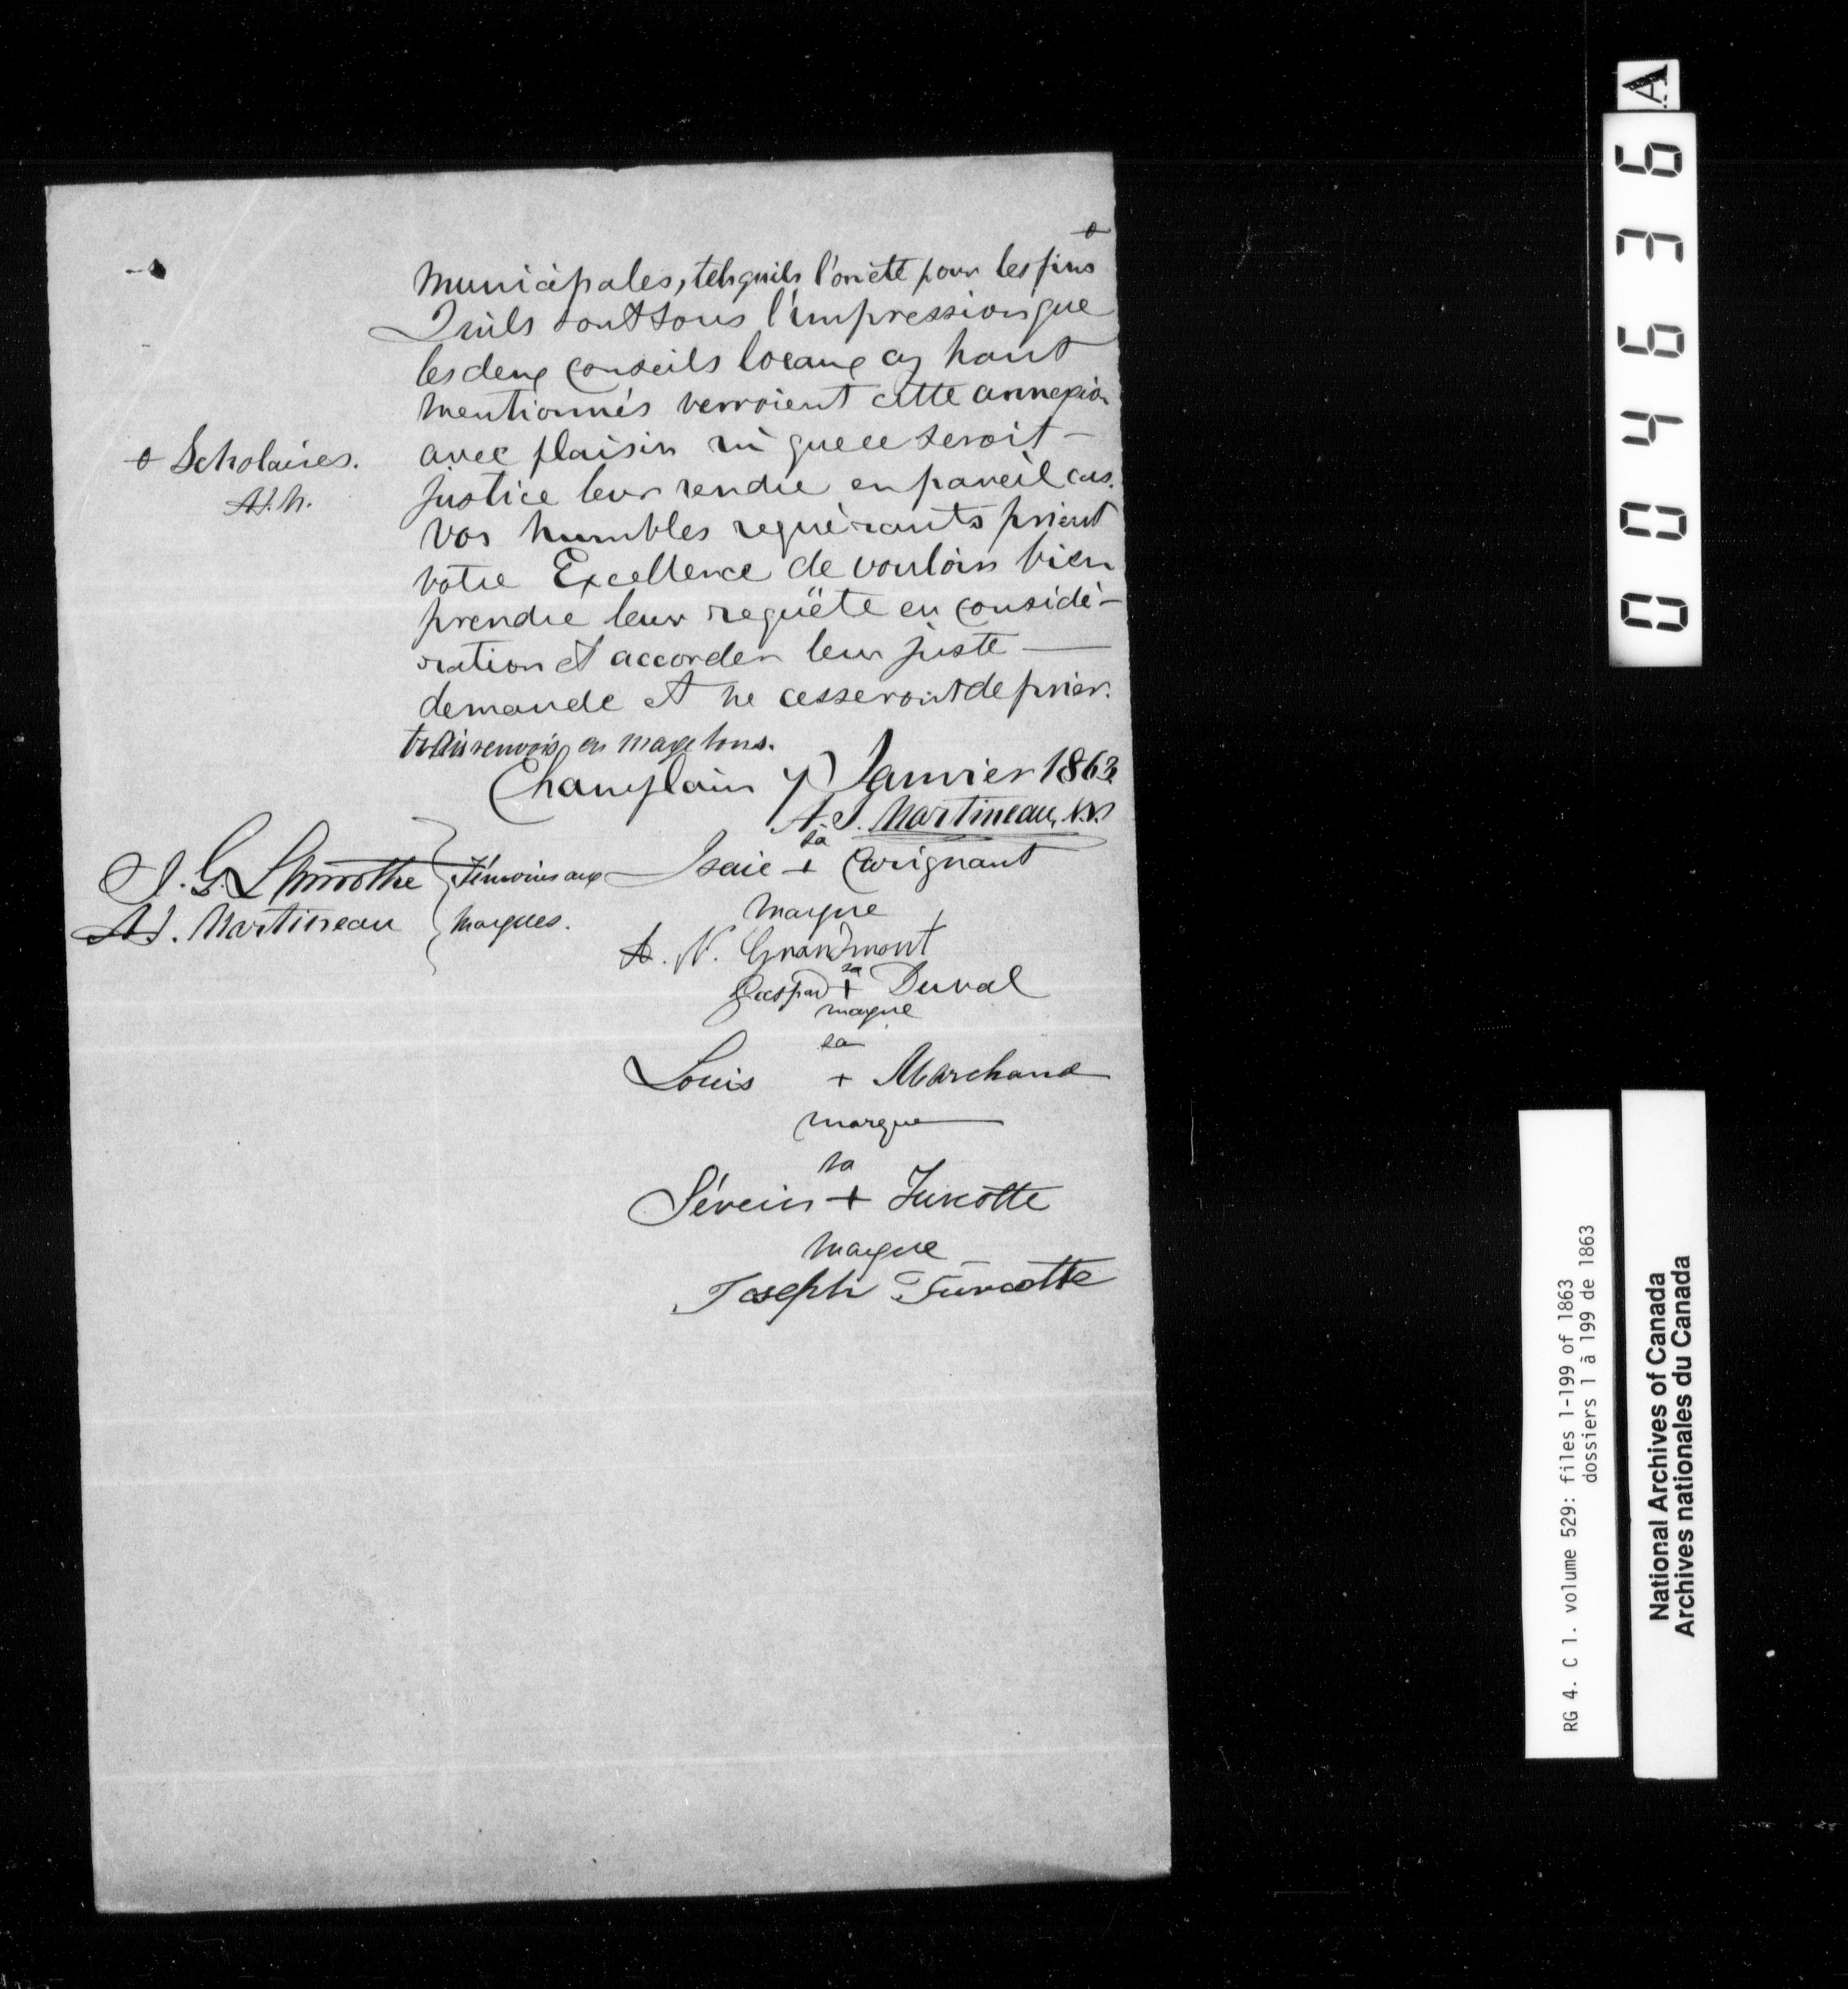 municipales, telsquils l'onété pour les fins ѳ
Quils sont sous l'impression que
les deux conseils locaux cy haut
mentionnés verroient cette annexion
avec plaisir et que ce seroit –
justice leur rendre en pareil cas.
Vos humbles requérants prient
votre Excellence de vouloir bien
prendre leur requëte en considé–
ration et accorder leur juste —
demande et ne cesseront de prier.
trois renvois en marge bons.
Champlain 7 Janvier 1863
A. J. Martineau, N.P.
ѳ Scholaires.
A.M.
J. G. Lamothe
A J. Martineau
Témoins aux
marques.
sa
Isaie + Carignant
marque
A. N. Grandmont
sa
Gaspard + Duval
marque
sa
Louis + Marchand
marque
sa
Séverin + Turcotte
marque
Joseph Turcotte
004636 A
RG 4. C 1. volume 529: files 1-199 of 1863
dossiers 1 à 199 de 1863
National Archives of Canada
Archives nationales du Canada